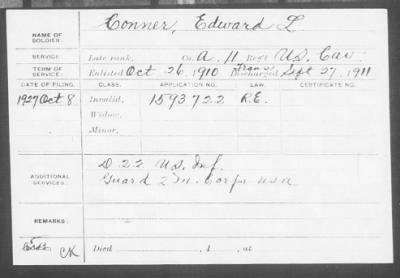 Conner, Edward L
NAME OF SOLDIER:
SERVICE: Late rank, Co. A. 11 Reg't U.S. Cav.
TERM OF SERVICE: Enlisted Oct 26, 1910, Trans Discharged Sept 27, 1911
DATE OF FILING. CLASS. APPLICATION NO. LAW. CERTIFICATE NO.
1927 Oct 8 Invalid, 1593722 R.E.
Widow,
Minor,
ADDITIONAL SERVICES: D 22 U.S. Inf.
Guard 2 M. Corps U S A
REMARKS:
CK Died , 1 , at